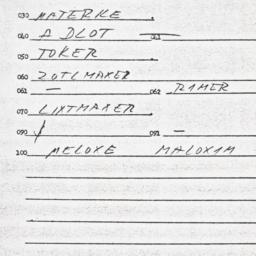 030 MATERKE
040 A DLOT 041 —
050 TOKER
060 ZOTLMAXER
061 — 062 RIMER
070 LIXTMAXER
090 / 091 —
100 MELOXE MALOXIM